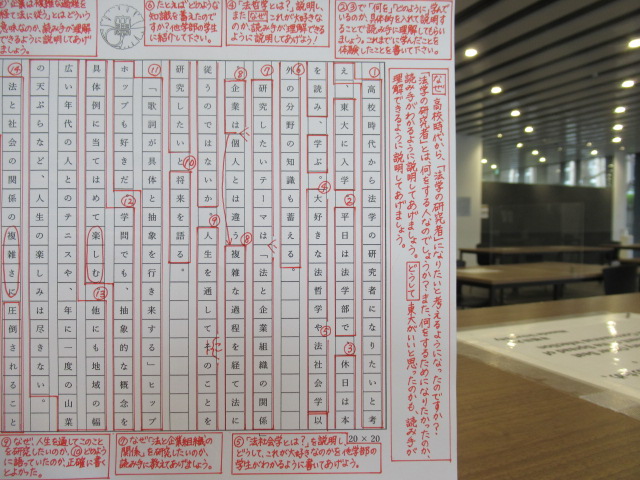 なぜ高校時代から、「法学の研究者」になりたいと考えるようになったのですか?
「法学の研究者」とは、何をする人なのでしょうか?また、何をするためになりたかったのか、
読み手がわかるように説明してあげましょう。どうして東大がいいと思ったのかも、読み手が
理解できるように説明してあげましょう。
②③で「何を」「どのように」学んで
いるのか、具体的を入れて説明す
ることで読み手に理解してもらいま
しょう。これまでに学んだことや
体験したことを書いて下さい。
④「法哲学とは?」説明し、
またなぜこれが大好きな
のか、読み手が理解できる
ように説明してあげよう!
⑥たとえばどのような
知識を蓄えたのですか?
他学部の学生に紹介して下さい。
①高校時代から法学の研究者になりたいと考
え、東大に入学。②平日は法学部で③休日は本
を読み、学ぶ。④大好きな法哲学や⑤法社会学以
⑥外の分野の知識も蓄える。
⑦研究したいテーマは「法と企業組織の関係」
⑧企業は個人とは違う⑧複雑な過程を経て法に
従うのではないか。⑨人生を通してこのことを
研究したいと⑩将来を語る。
⑪「歌詞が具体と抽象を行き来する」ヒップ
ホップも好きだ。⑫学問でも、抽象的な概念を
具体例に当てはめて楽しむ。⑬他にも地域の幅
広い年代の人とのテニスや、年に一度の山菜
の天ぷらなど、人生の楽しみは尽きない。
⑭法と社会の関係の複雑さに圧倒されること
20×20
⑤「法社会学とは?」を説明し、
どうして、これが大好きなのかを他学部の
学生がわかるように書いてあげよう。
⑦なぜ「法と企業組織の
関係」を研究したいのか、
読み手に教えてあげましょう。
⑨なぜ、人生を通してこのこと
を研究したいのか、⑩どのよう
に語っていたのか、正確に書く
とよかった。